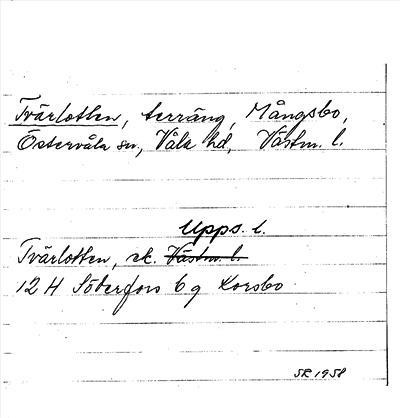 Tvärlotten, terräng, Mångsbo,
Östervåla sn, Våla hd, Västm. l.
Upps. l.
Tvärlotten, ek. Västm. l.
12 H Söderfors 6 g Korsbo
SR 1958